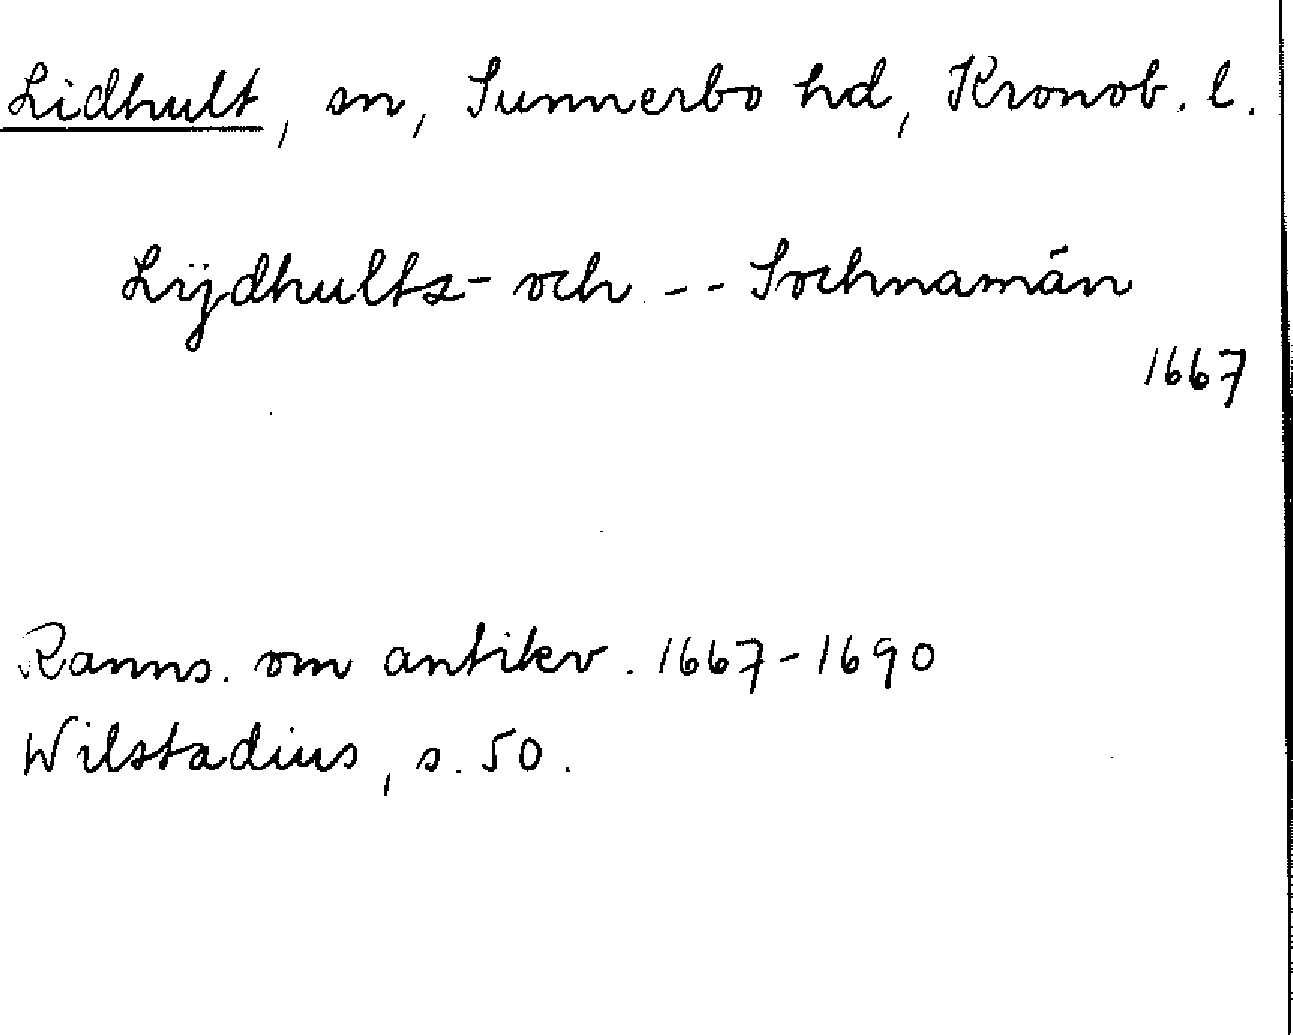 Lidhult, sn, Sunnerbo hd, Kronob. l.
Lÿdhultz- och - - Sochnamän
1667
Ranns. om antikv. 1667-1690
Wilstadius, s. 50.